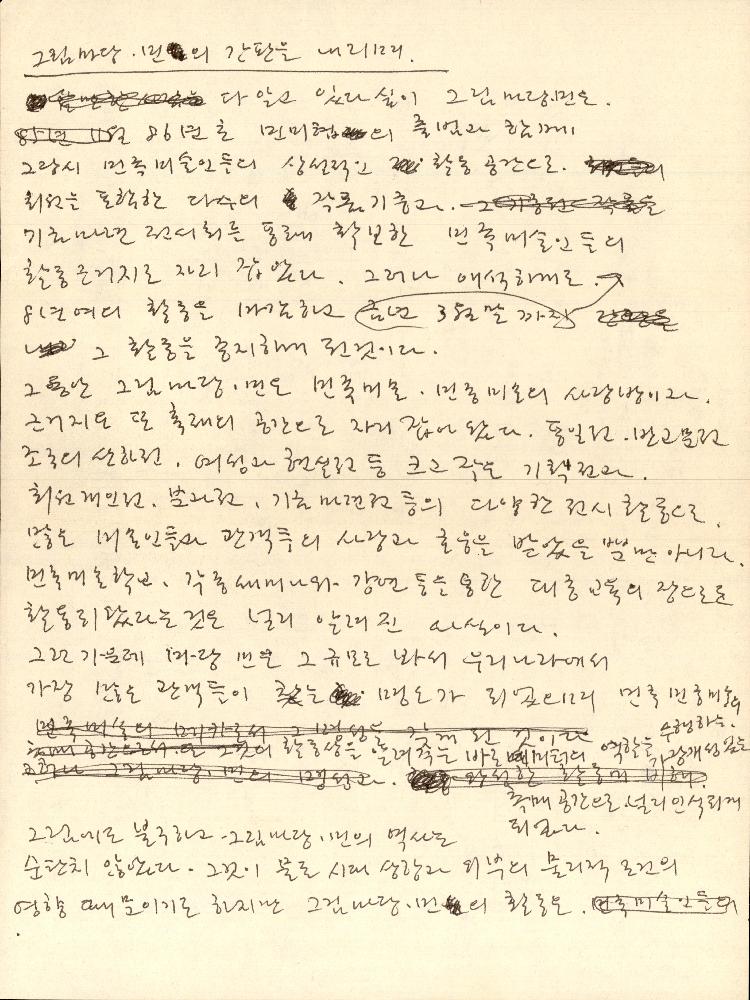 그림마당·민의 간판을 내리며.
다 알고 있다싶이 그림마당·민은.
86년초 민미협의 출범과 함께
그당시 민족미술인들의 상설적인 활동 공간으로.
회원을 포함한 다수의 작품기증과.
기금마련 전시회를 통해 확보한 민족미술인들의
활동근거지로 자리 잡았다. 그러나 애석하게도.
8년여의 활동을 마감하고 금년 3월말 까지
그 활동을 중지하게 된것이다.
그동안 그림마당·민은 민족미술·민중미술의 사랑방이자.
근거지로 또 축제의 공간으로 자리 잡아 왔다. 통일전·반고문전
조국의 산하전, 여성과 현실전 등 크고 작은 기획전과.
회원개인전. 분과전, 기금마련전 등의 다양한 전시활동으로.
많은 미술인들과 관객들의 사랑과 호응을 받았을 뿐만 아니라.
민족미술학교, 각종세미나와 강연 등을 통한 대중교육의 장으로도
활용되왔다는 것은 널리 알려진 사실이다.
그런 가운데 마당 민은 그 규모로 봐서 우리나라에서
가장 많은 관객들이 찾는 명소가 되었으며 민족민중미술의
활동상을 알려주는 바로메타의 역할을 수행하는.
촉매 공간으로 널리 인식되게
되었다.
그럼에도 불구하고 그림마당·민의 역사는
순탄치 않았다. 그것이 물론 시대 상황과 외부의 물리적 조건의
영향 때문이기도 하지만 그림마당·민의 활동은. 민족미술인들의